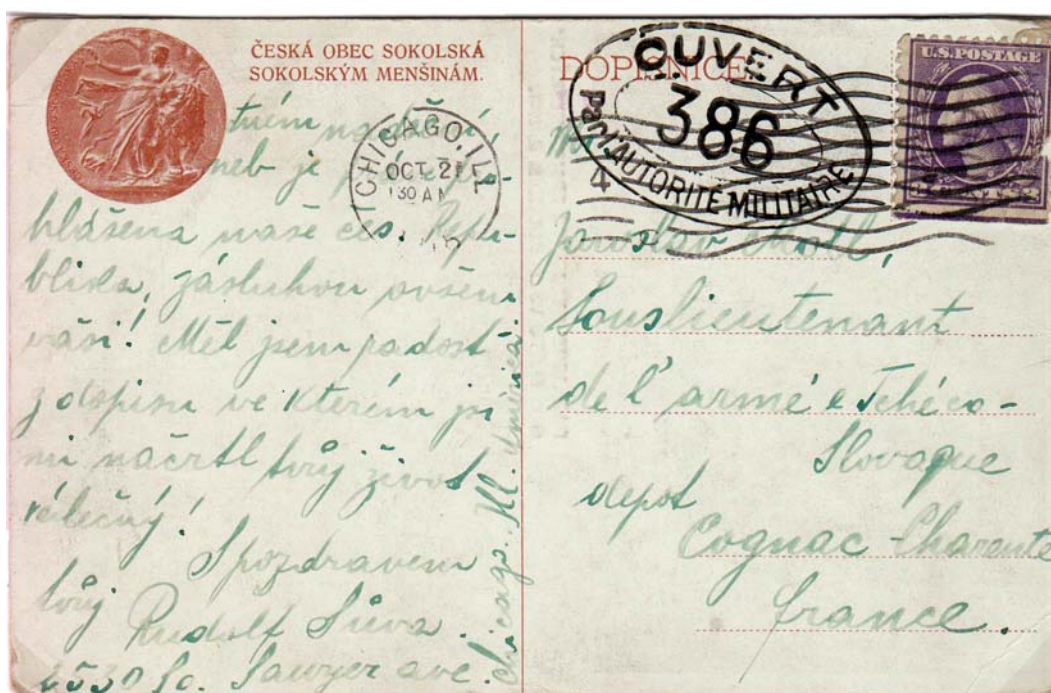 ČESKÁ OBEC SOKOLSKÁ
SOKOLSKÝM MENŠINÁM.
neb je
hlášena naše čes. Repu-
blika, zásluhou ovšem
vaší! Měl jsem radost
z dopisu ve kterém jsi
mi načrtl tvůj život
válečný!
S pozdravem
tvůj
Rudolf
2530 So. Sawyer ave.
Chicago. Ill.
CHICAGO, ILL.
OCT 21
30 AM
DOPISNICE
OUVERT
386
Par L'AUTORITÉ MILITAIRE
4
U.S. POSTAGE
Jaroslav
Souslieutenant
de l'armée Tchéco-
Slovaque
depot
Cognac - Charente
france.